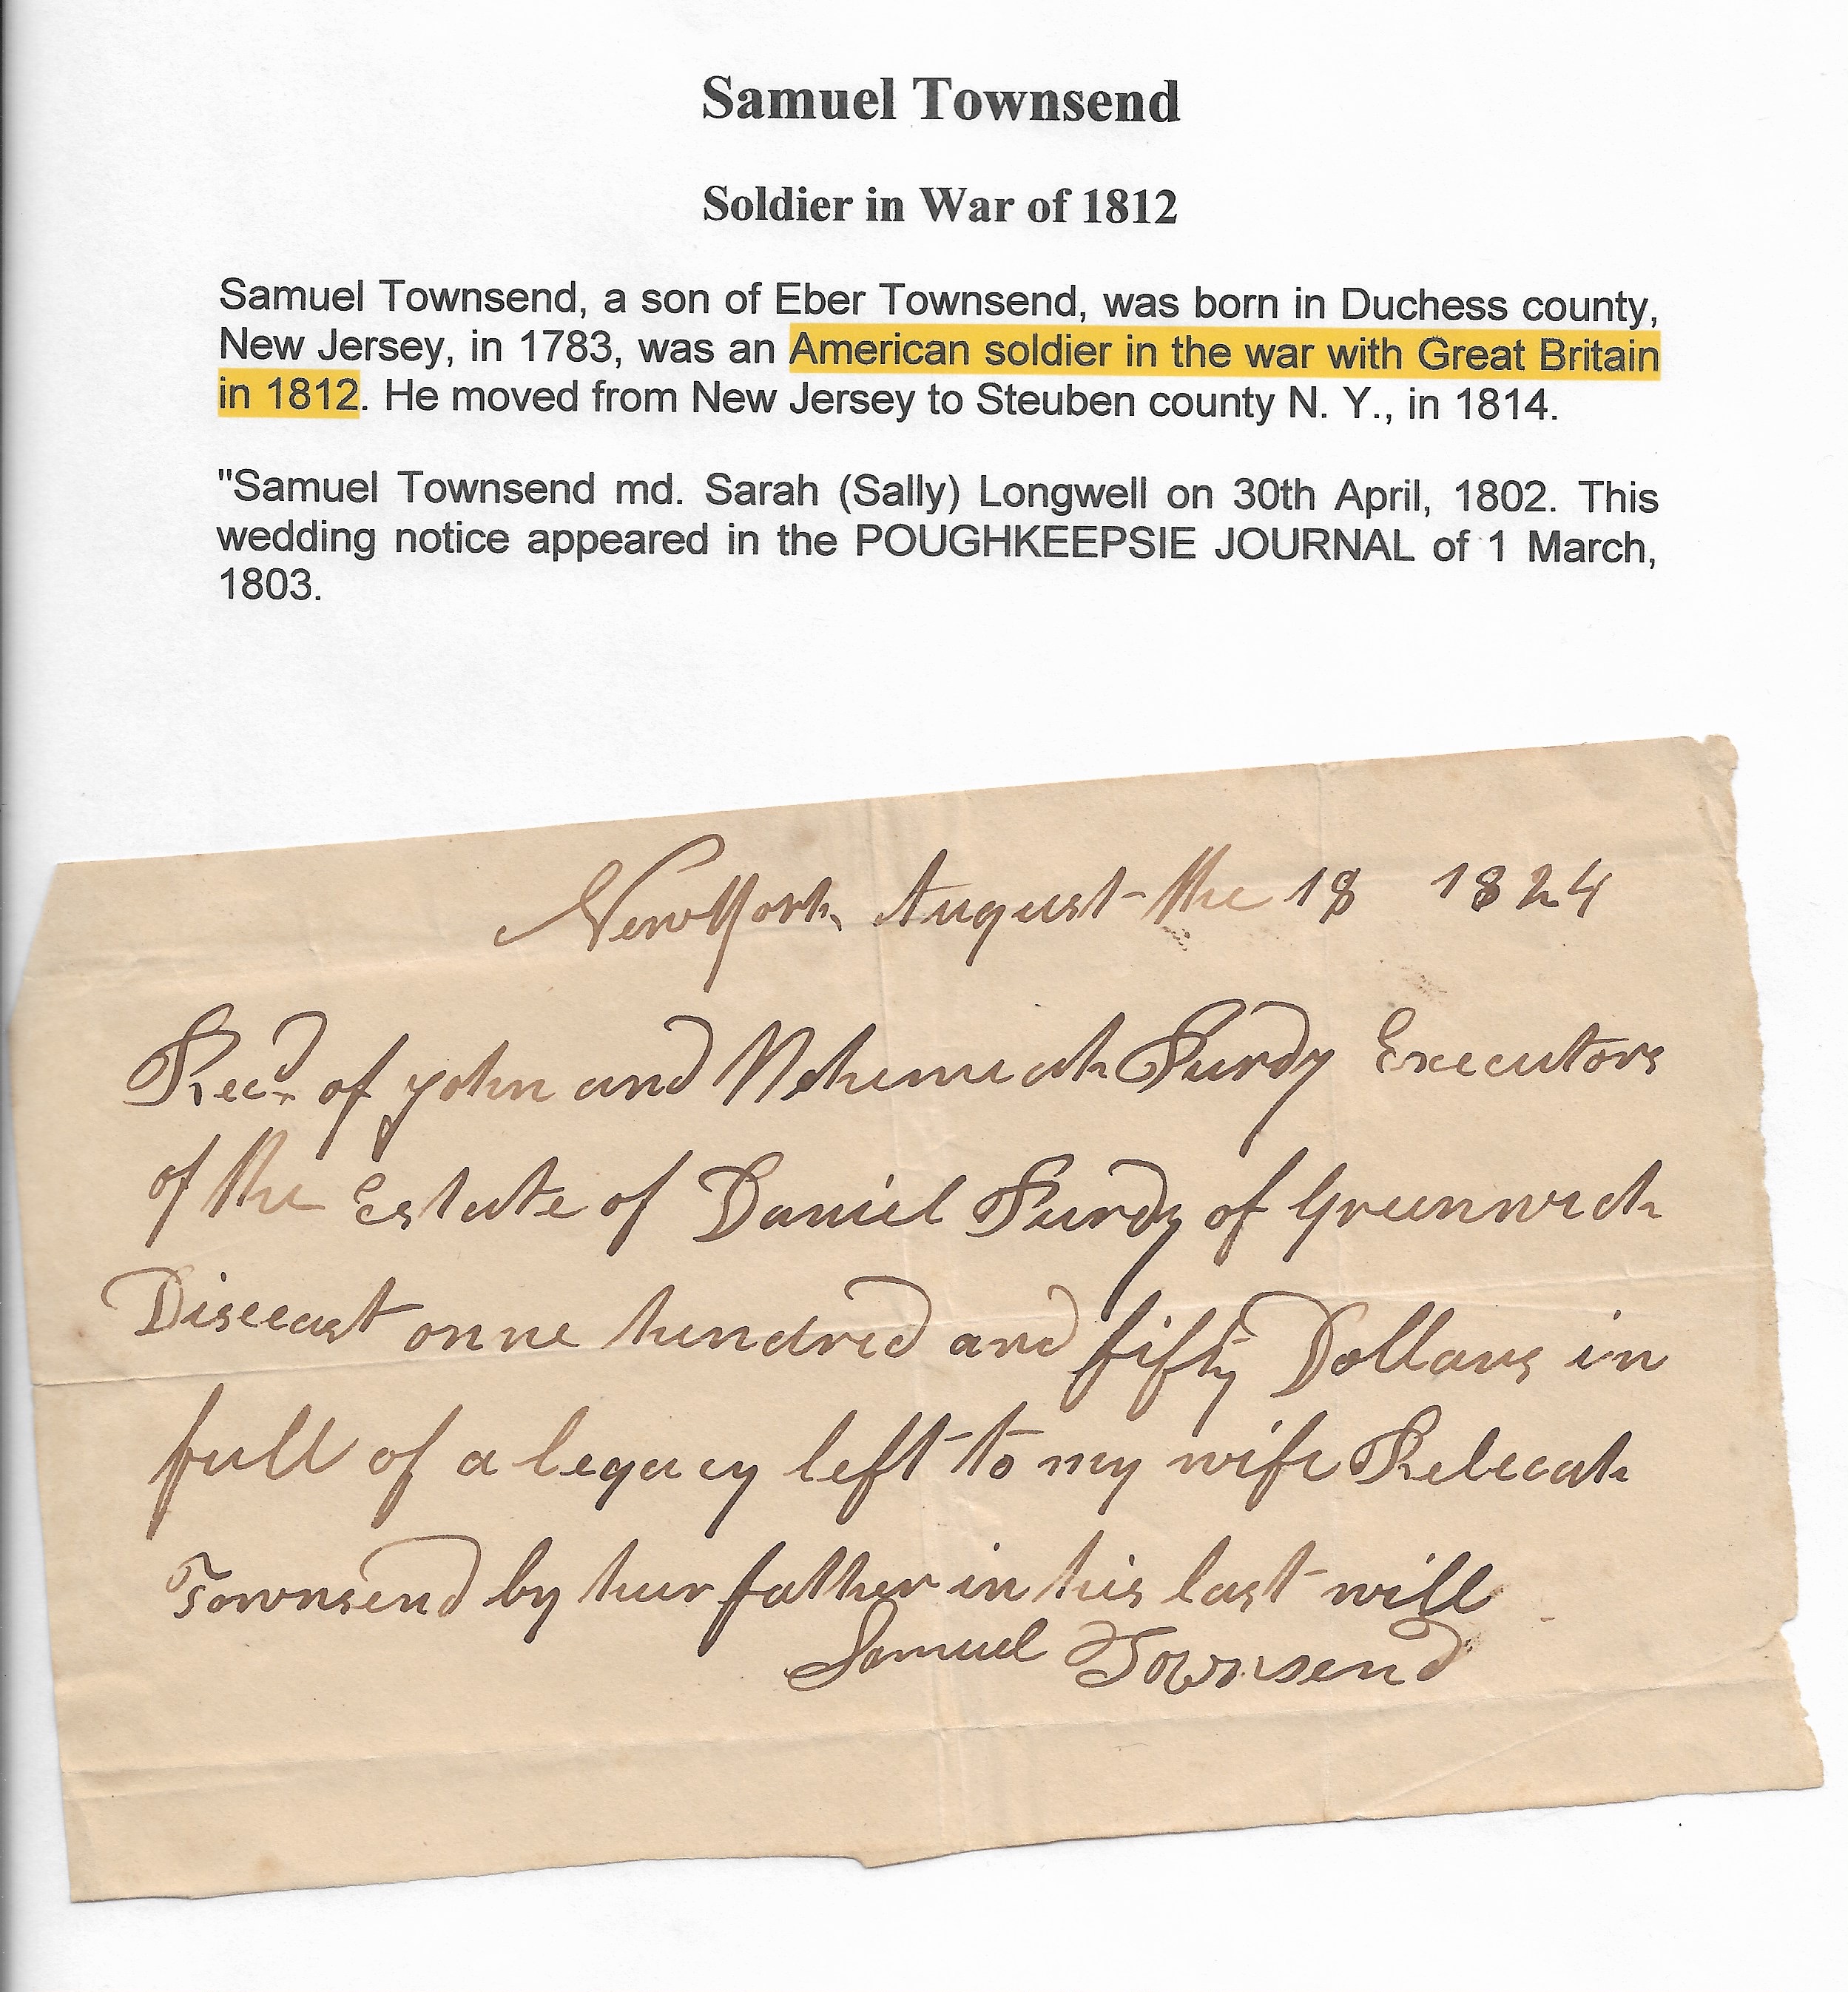 Samuel Townsend
Soldier in War of 1812
Samuel Townsend, a son of Eber Townsend, was born in Duchess county,
New Jersey, in 1783, was an American soldier in the war with Great Britain
in 1812. He moved from New Jersey to Steuben county N. Y., in 1814.
"Samuel Townsend md. Sarah (Sally) Longwell on 30th April, 1802. This
wedding notice appeared in the POUGHKEEPSIE JOURNAL of 1 March,
1803.
New York August the 18 1824
Recd of john and Nehemiah Purdy Executors
of the Estate of Daniel Purdy of Greenwich
Diseeast onne hundred and fifty Dollars in
full of a legacy left to my wife Rebecah
Townsend by hur father in his last will
Samuel Townsend